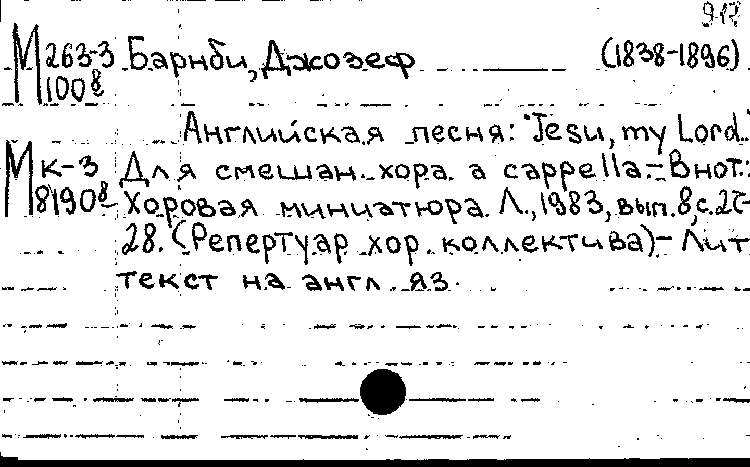 917
М 263-3 Барнби, Джозеф (1838-1896)
100 8
Английская песня: "Jesu, my Lord."
М к-3 Для смешан. хора a cappella.- В нот.:
8190 8 Хоровая миниатюра. Л., 1983, вып. 8, с. 27-
28. (Репертуар хор. коллектива)- Лит
текст на англ. яз.